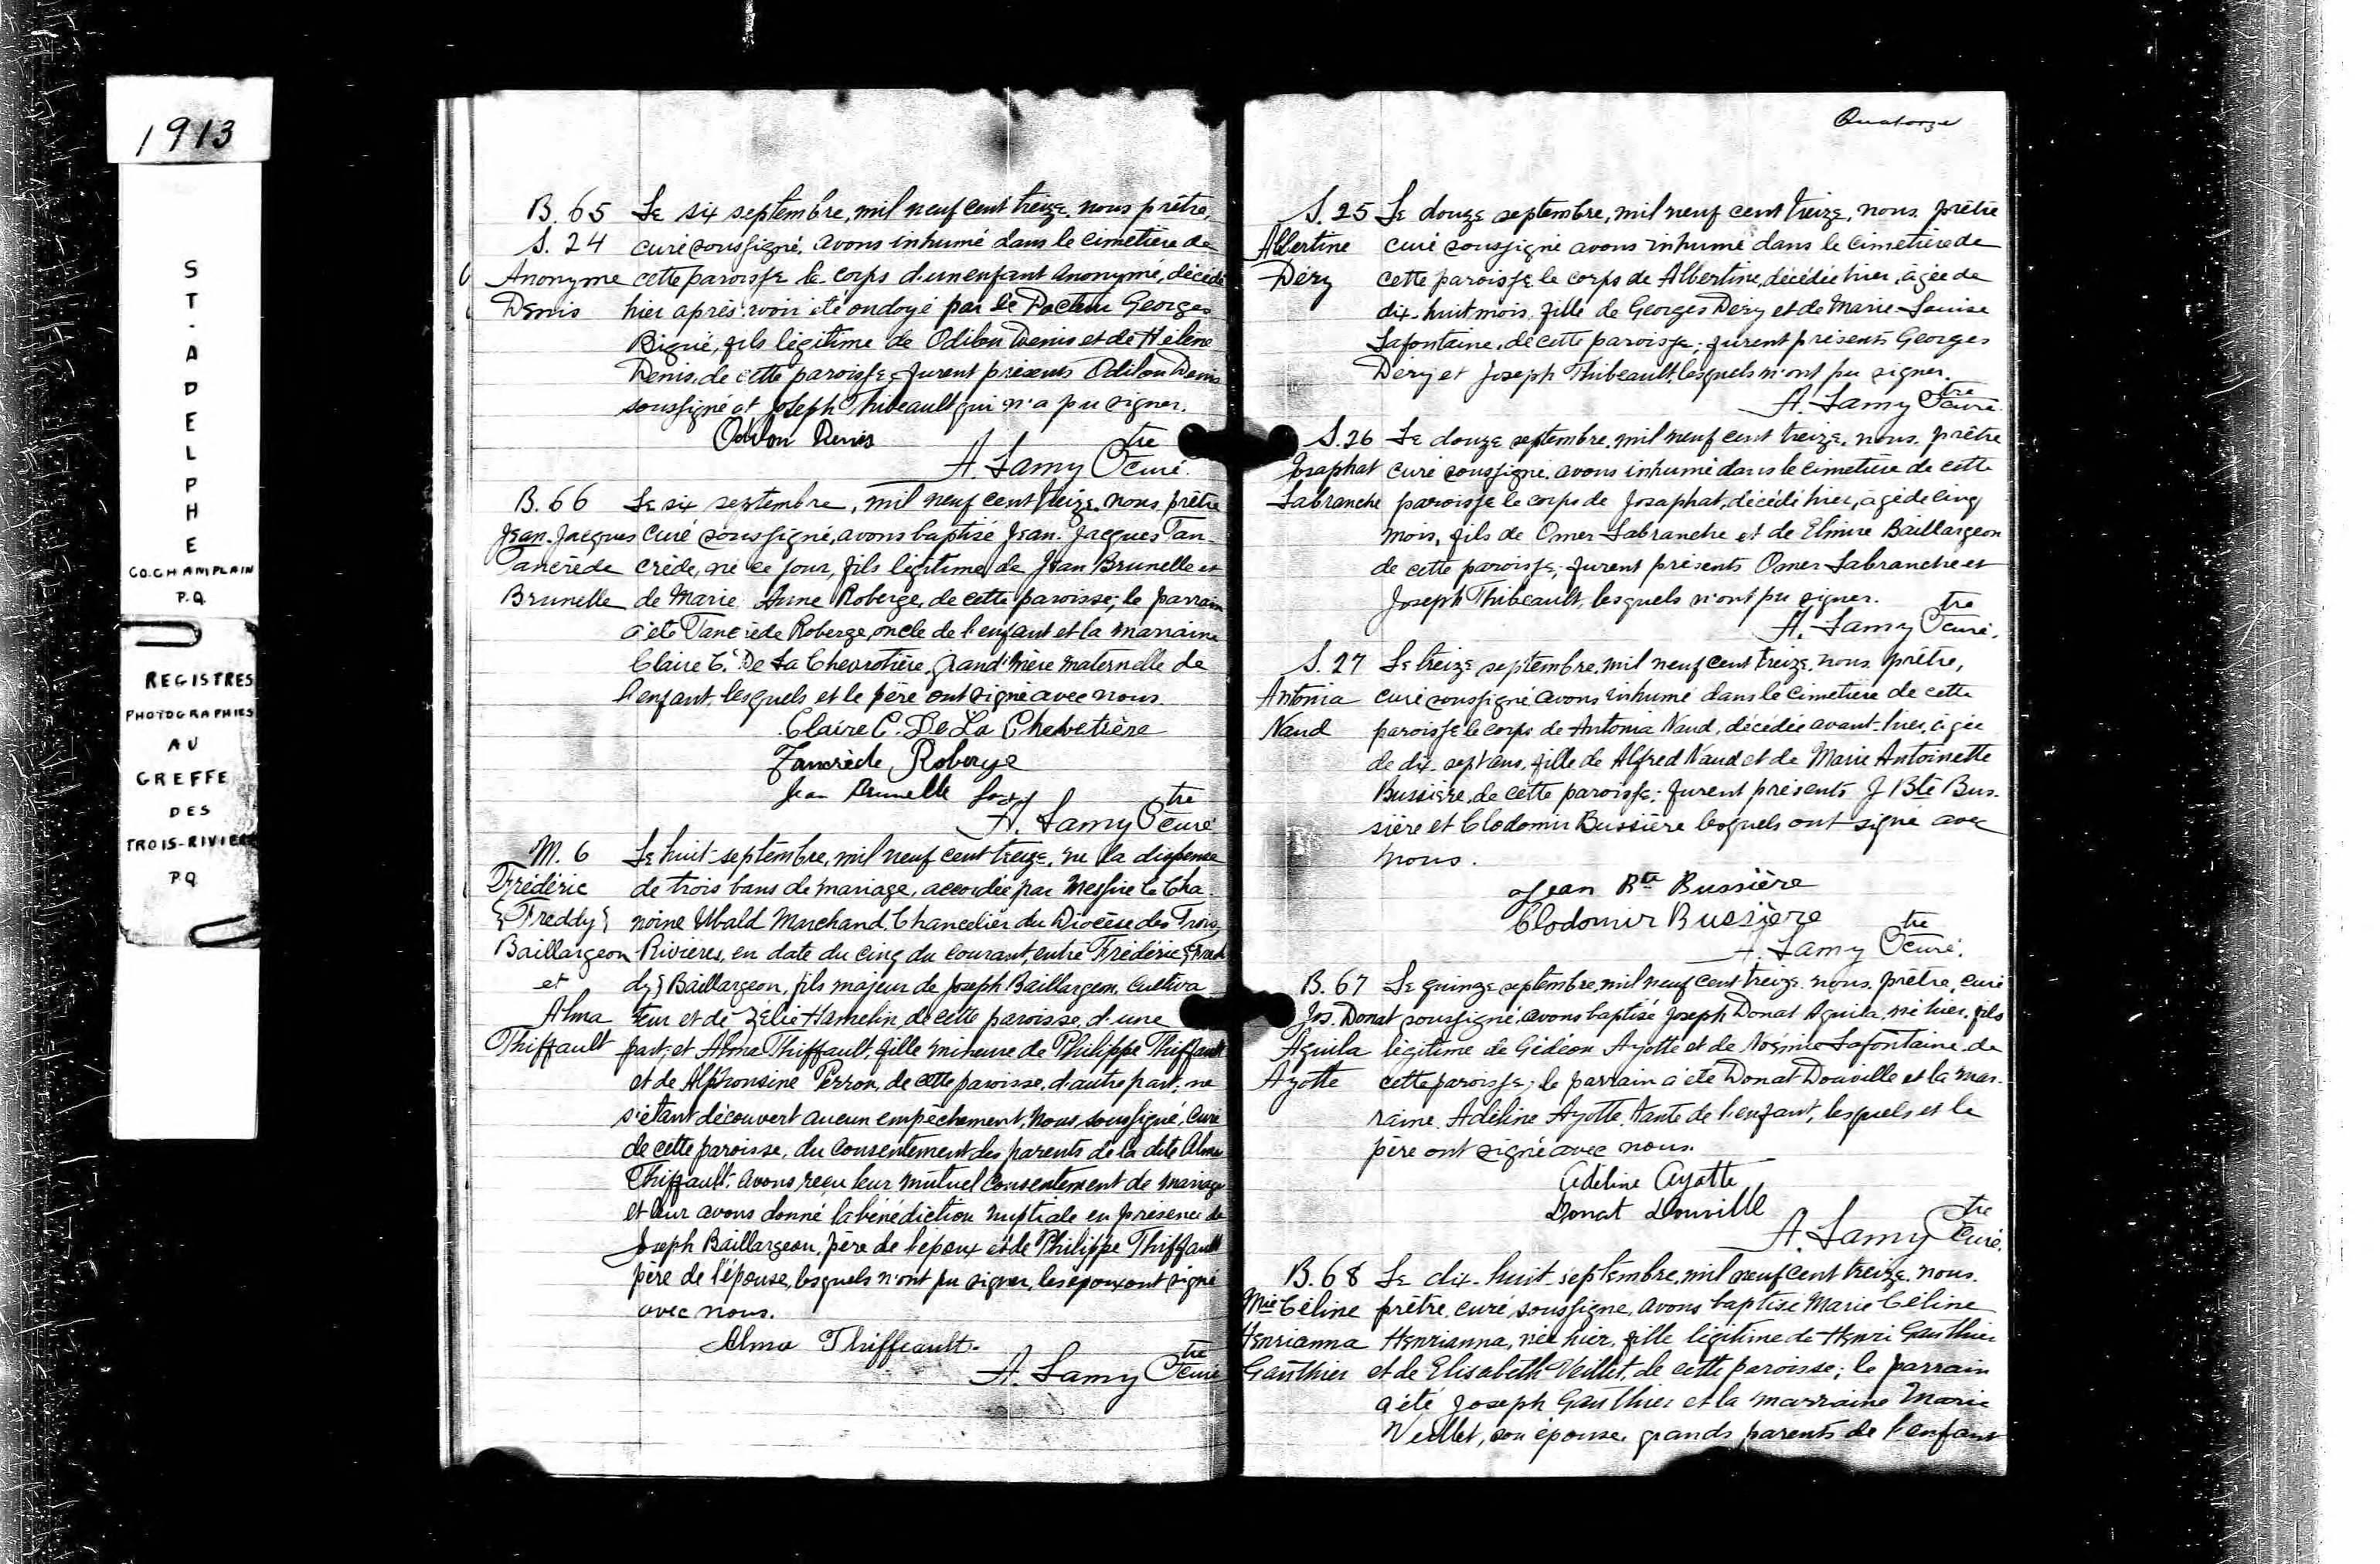 1913
ST-ADELPHE
CO. CHAMPLAIN
P.Q.
REGISTRES
PHOTOGRAPHIÉS
AU
GREFFE
DES
TROIS-RIVIER
PQ
B. 65 Le six septembre, mil neuf cent treize, nous prêtre,
S. 24 curé soussigné, avons inhumé dans le cimetière de
Anonyme cette paroisse le corps d'un enfant anonyme, décédé
Denis hier après avoir été ondoyé par le Docteur Georges
Bigué, fils légitime de Odilon Denis et de Hélène
Denis, de cette paroisse; furent présents Odilon Denis
soussigné et Joseph Thibeault qui n'a pu signer.
Odilon Denis
A. Lamy Ptre curé.
B. 66 Le six septembre, mil neuf cent treize, nous, prêtre
Jean-Jacques curé soussigné, avons baptisé Jean-Jacques Tan-
Tancrède crède, né ce jour, fils légitime de Jean Brunelle et
Brunelle de Marie Anne Roberge, de cette paroisse; le parrain
a été Tancrède Roberge, oncle de l'enfant et la marraine
Claire C. De La Chevrotière, grand'mère maternelle de
l'enfant, lesquels et le père ont signé avec nous.
Claire C. De La Chevrotière
Tancrède Roberge
Jean Brunelle
A. Lamy Ptre curé
M. 6 Le huit septembre, mil neuf cent treize, vu la dispense
Frédéric de trois bans de mariage, accordée par Messire le Cha-
{Freddy} noine Ubald Marchand, Chancelier du Diocèse des Trois
Baillargeon Rivières, en date du cinq du courant, entre Frédéric {Fred
et dy} Baillargeon, fils majeur de Joseph Baillargeon, cultiva
Alma teur et de Zélie Hamelin de cette paroisse, d'une
Thiffault part; et Alma Thiffault, fille mineure de Philippe Thiffault
et de Alphonsine Perron, de cette paroisse, d'autre part; ne
s'étant découvert aucun empêchement, nous soussigné, curé
de cette paroisse, du consentement des parents de la dite Alma
Thiffault, avons reçu leur mutuel consentement de mariage
et leur avons donné la bénédiction nuptiale en présence de
Joseph Baillargeon, père de l'époux et de Philippe Thiffault
père de l'épouse, lesquels n'ont pu signer, les époux ont signé
avec nous.
Alma Thiffeault.
A. Lamy Ptre curé
Quatorze
S. 25 Le douze septembre, mil neuf cent treize, nous, prêtre
Albertine curé soussigné avons inhumé dans le cimetière de
Déry cette paroisse le corps de Albertine, décédée hier, âgée de
dix-huit mois, fille de Georges Déry et de Marie-Louise
Lafontaine, de cette paroisse; furent présents Georges
Déry et Joseph Thibeault, lesquels n'ont pu signer.
A. Lamy Ptre curé.
S. 26 Le douze septembre, mil neuf cent treize, nous, prêtre
Josaphat curé soussigné, avons inhumé dans le cimetière de cette
Labranche paroisse le corps de Josaphat, décédé hier, âgé de cinq
mois, fils de Omer Labranche et de Elmire Baillargeon
de cette paroisse; furent présents Omer Labranche et
Joseph Thibeault, lesquels n'ont pu signer.
A. Lamy Ptre curé.
S. 27 Le treize septembre, mil neuf cent treize, nous, prêtre,
Antonia curé soussigné avons inhumé dans le cimetière de cette
Naud paroisse le corps de Antonia Naud, décédée avant-hier, âgée
de dix-sept ans, fille de Alfred Naud et de Marie Antoinette
Bussière, de cette paroisse; furent présents J Bte Bus-
sière et Clodomir Bussière lesquels ont signé avec
nous.
Jean Bte Bussière
Clodomir Bussière
A. Lamy Ptre curé.
B. 67 Le quinze septembre, mil neuf cent treize, nous, prêtre, curé
Jos. Donat soussigné, avons baptisé Joseph Donat Aquila, né hier, fils
Aquila légitime de Gédéon Ayotte et de Noémie Lafontaine, de
Ayotte cette paroisse; le parrain a été Donat Douville et la mar-
raine Adéline Ayotte, tante de l'enfant, lesquels et le
père ont signé avec nous.
Adéline Ayotte
Donat Douville
A. Lamy Ptre curé.
B. 68 Le dix-huit septembre, mil neuf cent treize, nous,
Mie Céline prêtre, curé, soussigné, avons baptisé Marie Céline
Henrianna Henrianna, née hier, fille légitime de Henri Gauthier
Gauthier et de Elisabeth Veillet, de cette paroisse; le parrain
a été Joseph Gauthier et la marraine Marie
Veillet, son épouse, grands parents de l'enfant